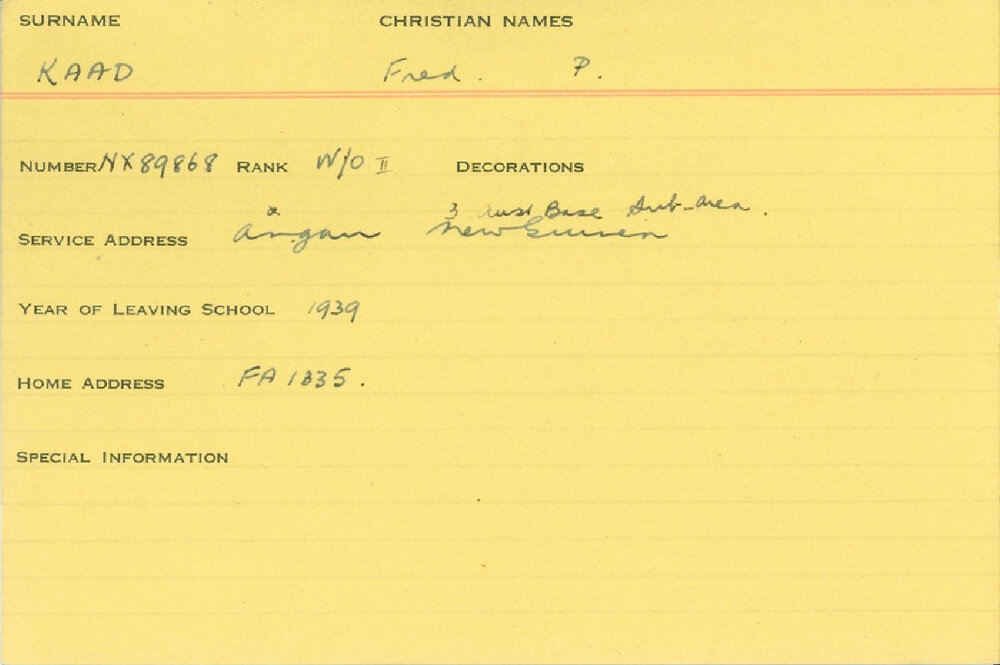 SURNAME CHRISTIAN NAMES
KAAD Fred. P.
NUMBER NX89868 RANK W/O II DECORATIONS
3 Aust Base Sub-area.
SERVICE ADDRESS Angau New Guinea
YEAR OF LEAVING SCHOOL 1939
HOME ADDRESS FA 1335.
SPECIAL INFORMATION